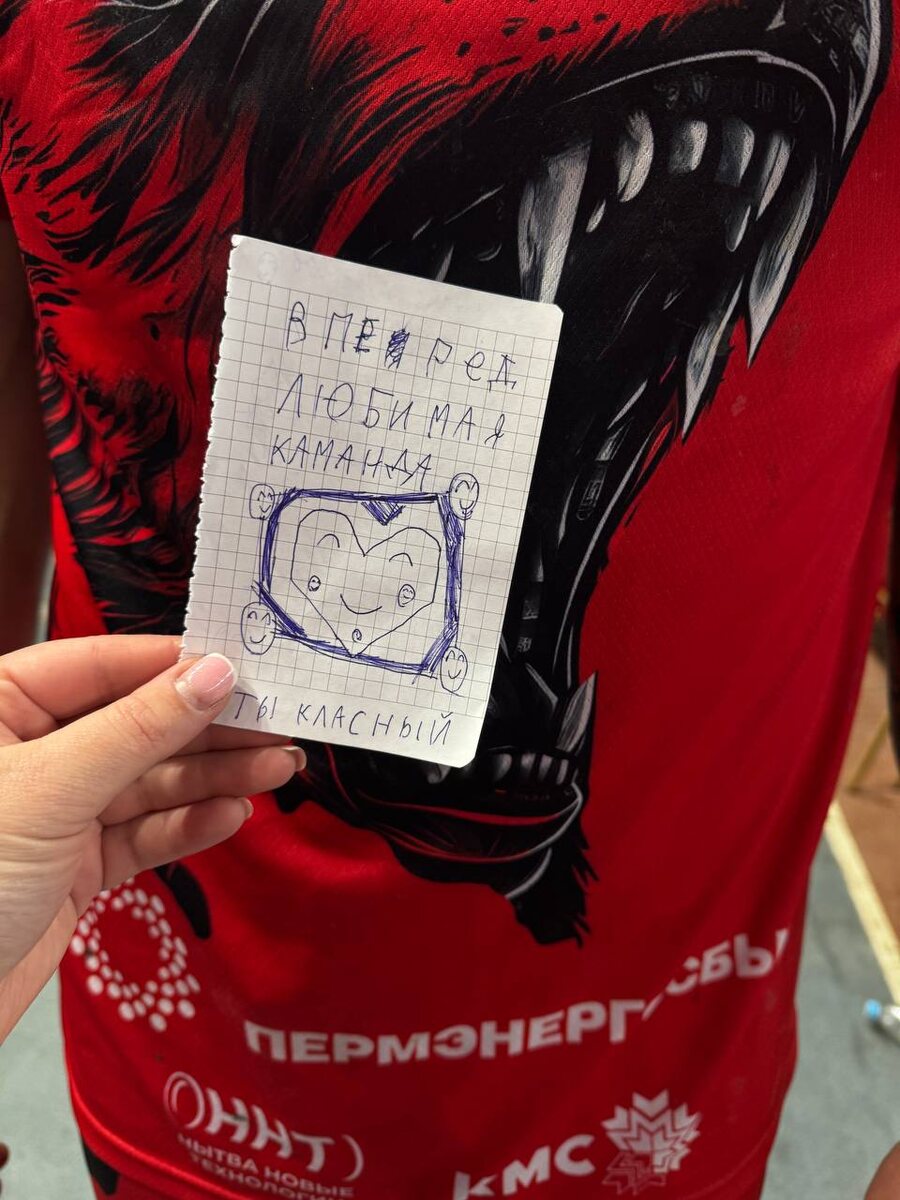 ВПЕРЕД
ЛЮБИМАЯ
КАМАНДА
ТЫ КЛАСНЫЙ
ПЕРМЭНЕРГОСБЫ
ННТ
НЫТВА НОВЫЕ
ТЕХНОЛОГИИ
КМС